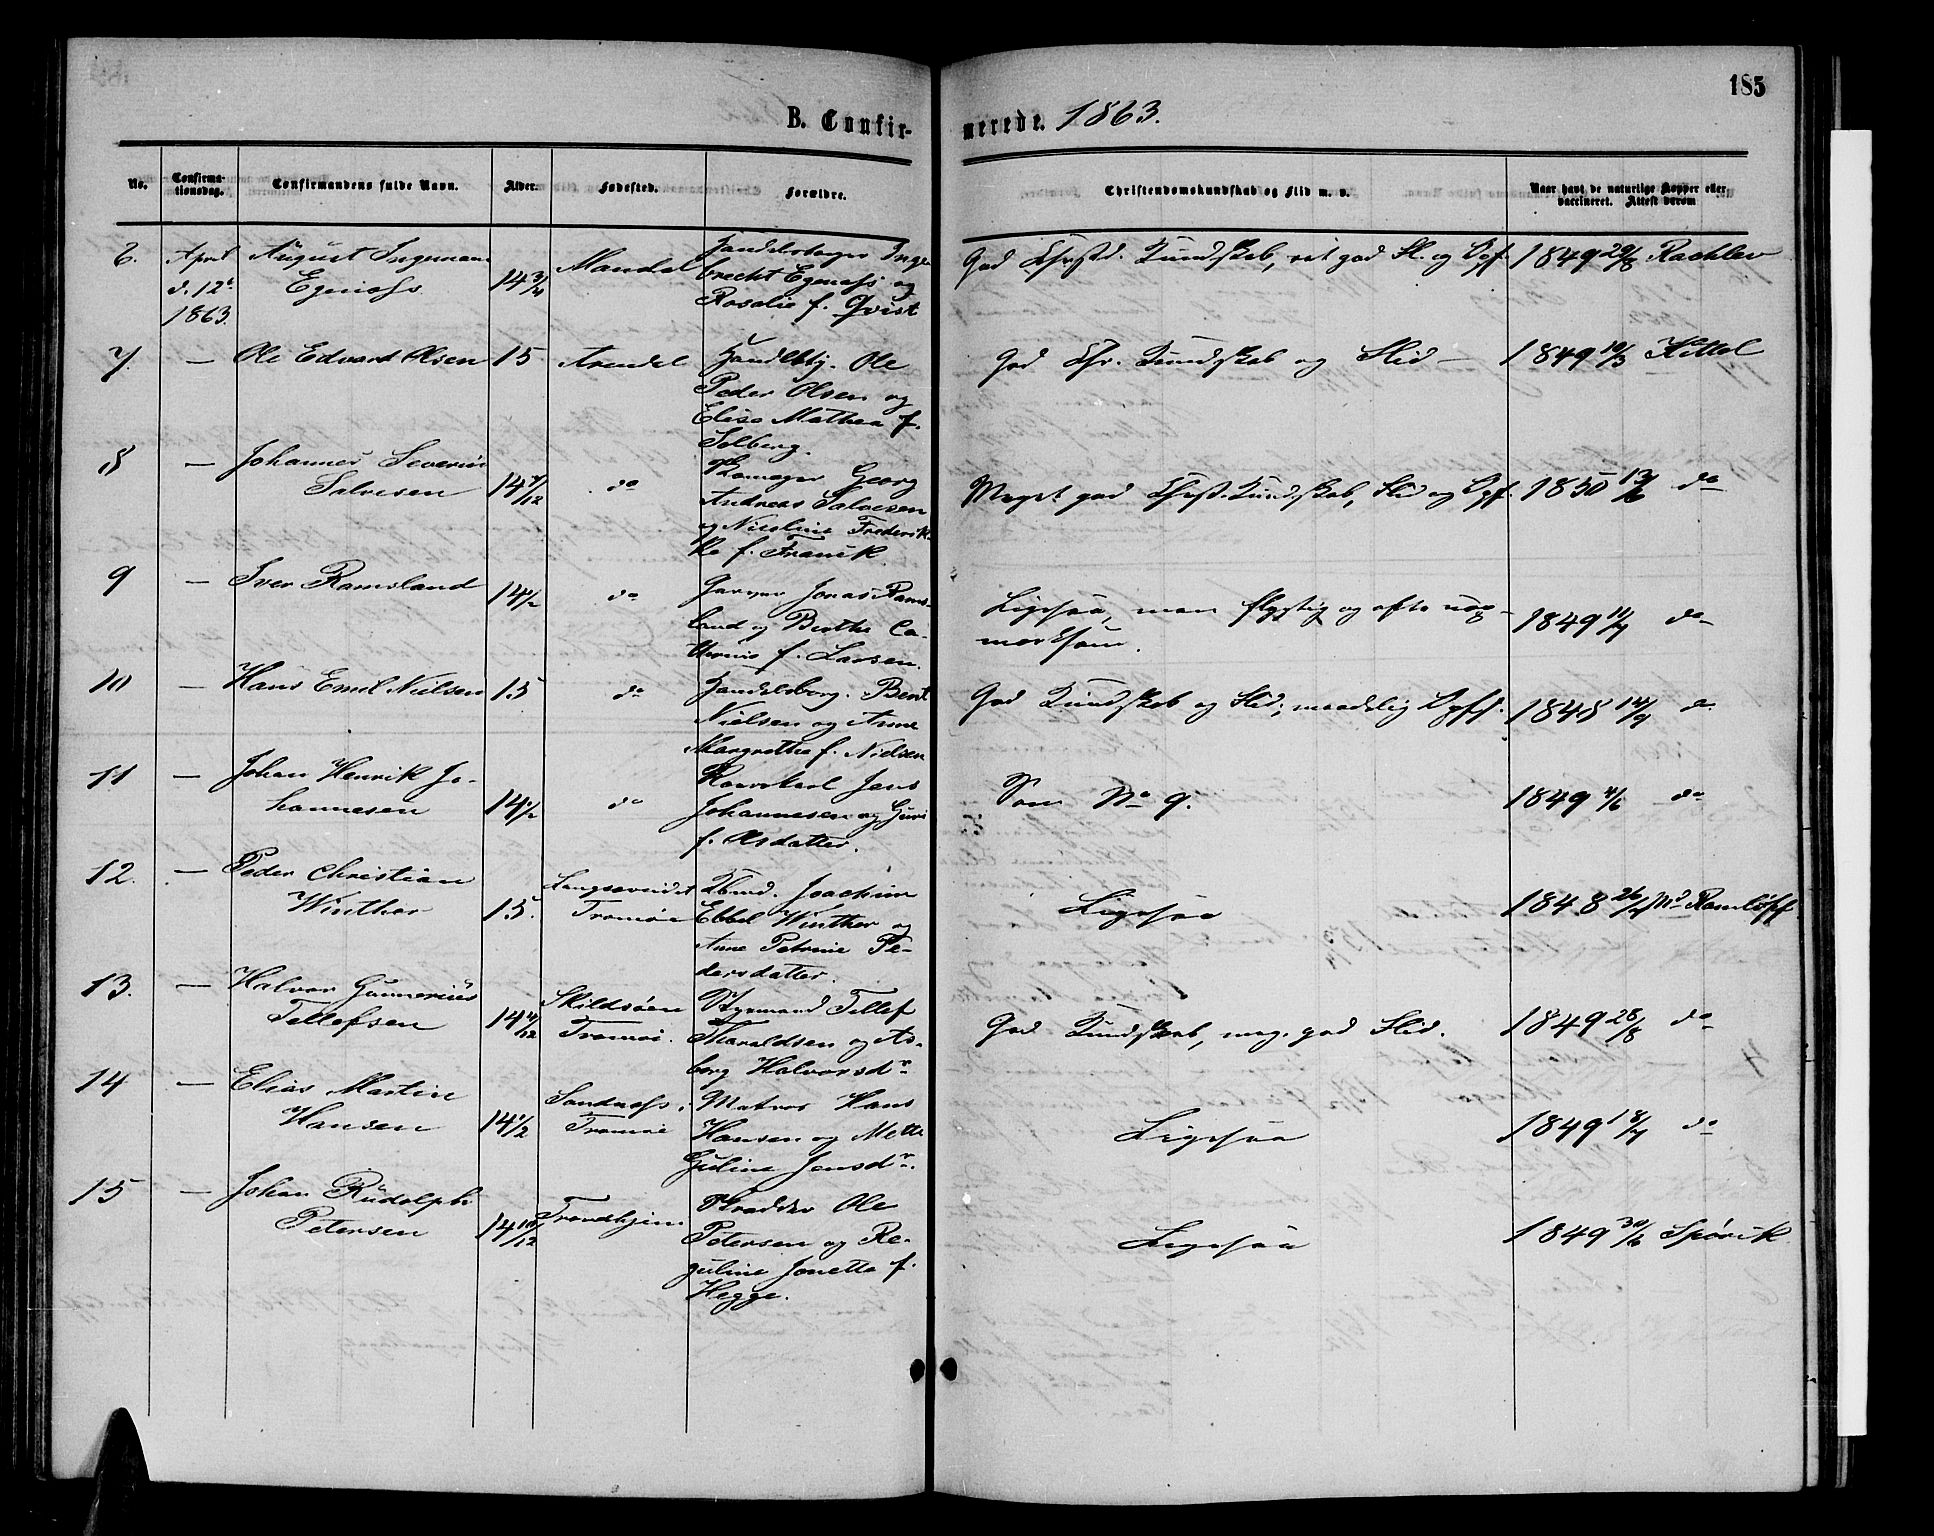 185
B. Confirmerede. 1863.
No. Confirmationsdag. Confirmandens fulde Navn. Alder. Fødested. Forældre. Christendomskundskab og Flid m. v. Naar havt de naturlige Kopper eller vaccineret. Attest derom
6. April d. 12te 1863. August Ingeman Egenæss 14 3/4 Mandal Handelsborger Inge
brecht Egenæss og
Rosalie f. Qvist
God Chrstd. Kundskab, ret god Fl. og Opf. 1849 20/8
7. — Ole Edvard Olsen 15 Arendal Handelsbg. Ole
Peder Olsen og
Elise Mathea f.
Solberg.
God Chr. Kundskab og Flid — 1849 10/3 Kittel
8 — Johannes Severin
Salvesen 14 7/12 do Georg
Andreas Salvesen
og Nicoline Frederik-
ke f. Franck.
Meget god Chrst. Kundskab, Flid og Opf. 1850 13/6 do
9 — Iver Ramsland 14 1/2 do Garver Jonas Rams-
land og Berthe Ca-
thrine f. Larsen.
Ligesaa, men flygtig og ofte uop-
mærksom. 1849 11/7 do
10 — Hans Emil Nielsen 15 do Handelsborg. Bent
Nielsen og Anne
Margrethe f. Nielsen
God Kundskab og Flid; maadelig Opff. 1848 14/9 do
11 — Johan Henrik Jo-
hannesen 14 1/2 do Jens
Johannesen og Guri
f. Olsdatter.
Som No 9. 1849 4/6 do
12. — Peder Christian
Winther 15. Tromøe Tbmd. Joachim
Ebbel Winther og
Anne Petrine Pe-
dersdatter.
Ligesaa 1848 26/7 Md Ramløff
13. — Halvor Gunnerius
Tellefsen 14 11/12 Skildsøen
Tromøi. Styrmand Tellef
Haraldsen og As-
borg Halvorsdr.
God Kundskab, meg. god Flid. 1849 28/8 do
14 — Elias Martin
Hansen 14 1/2 Sandnæss,
Tromøie Matros Hans
Hansen og Mette
Guline Jensdr.
Ligesaa 1849 18/7 do
15 — Johan Rudolph
Petersen 14 10/12 Trondhjem Skrædder Ole
Petersen og Re-
guline Jonette f.
Hegge.
Ligesaa 1849 30/6 Spørck